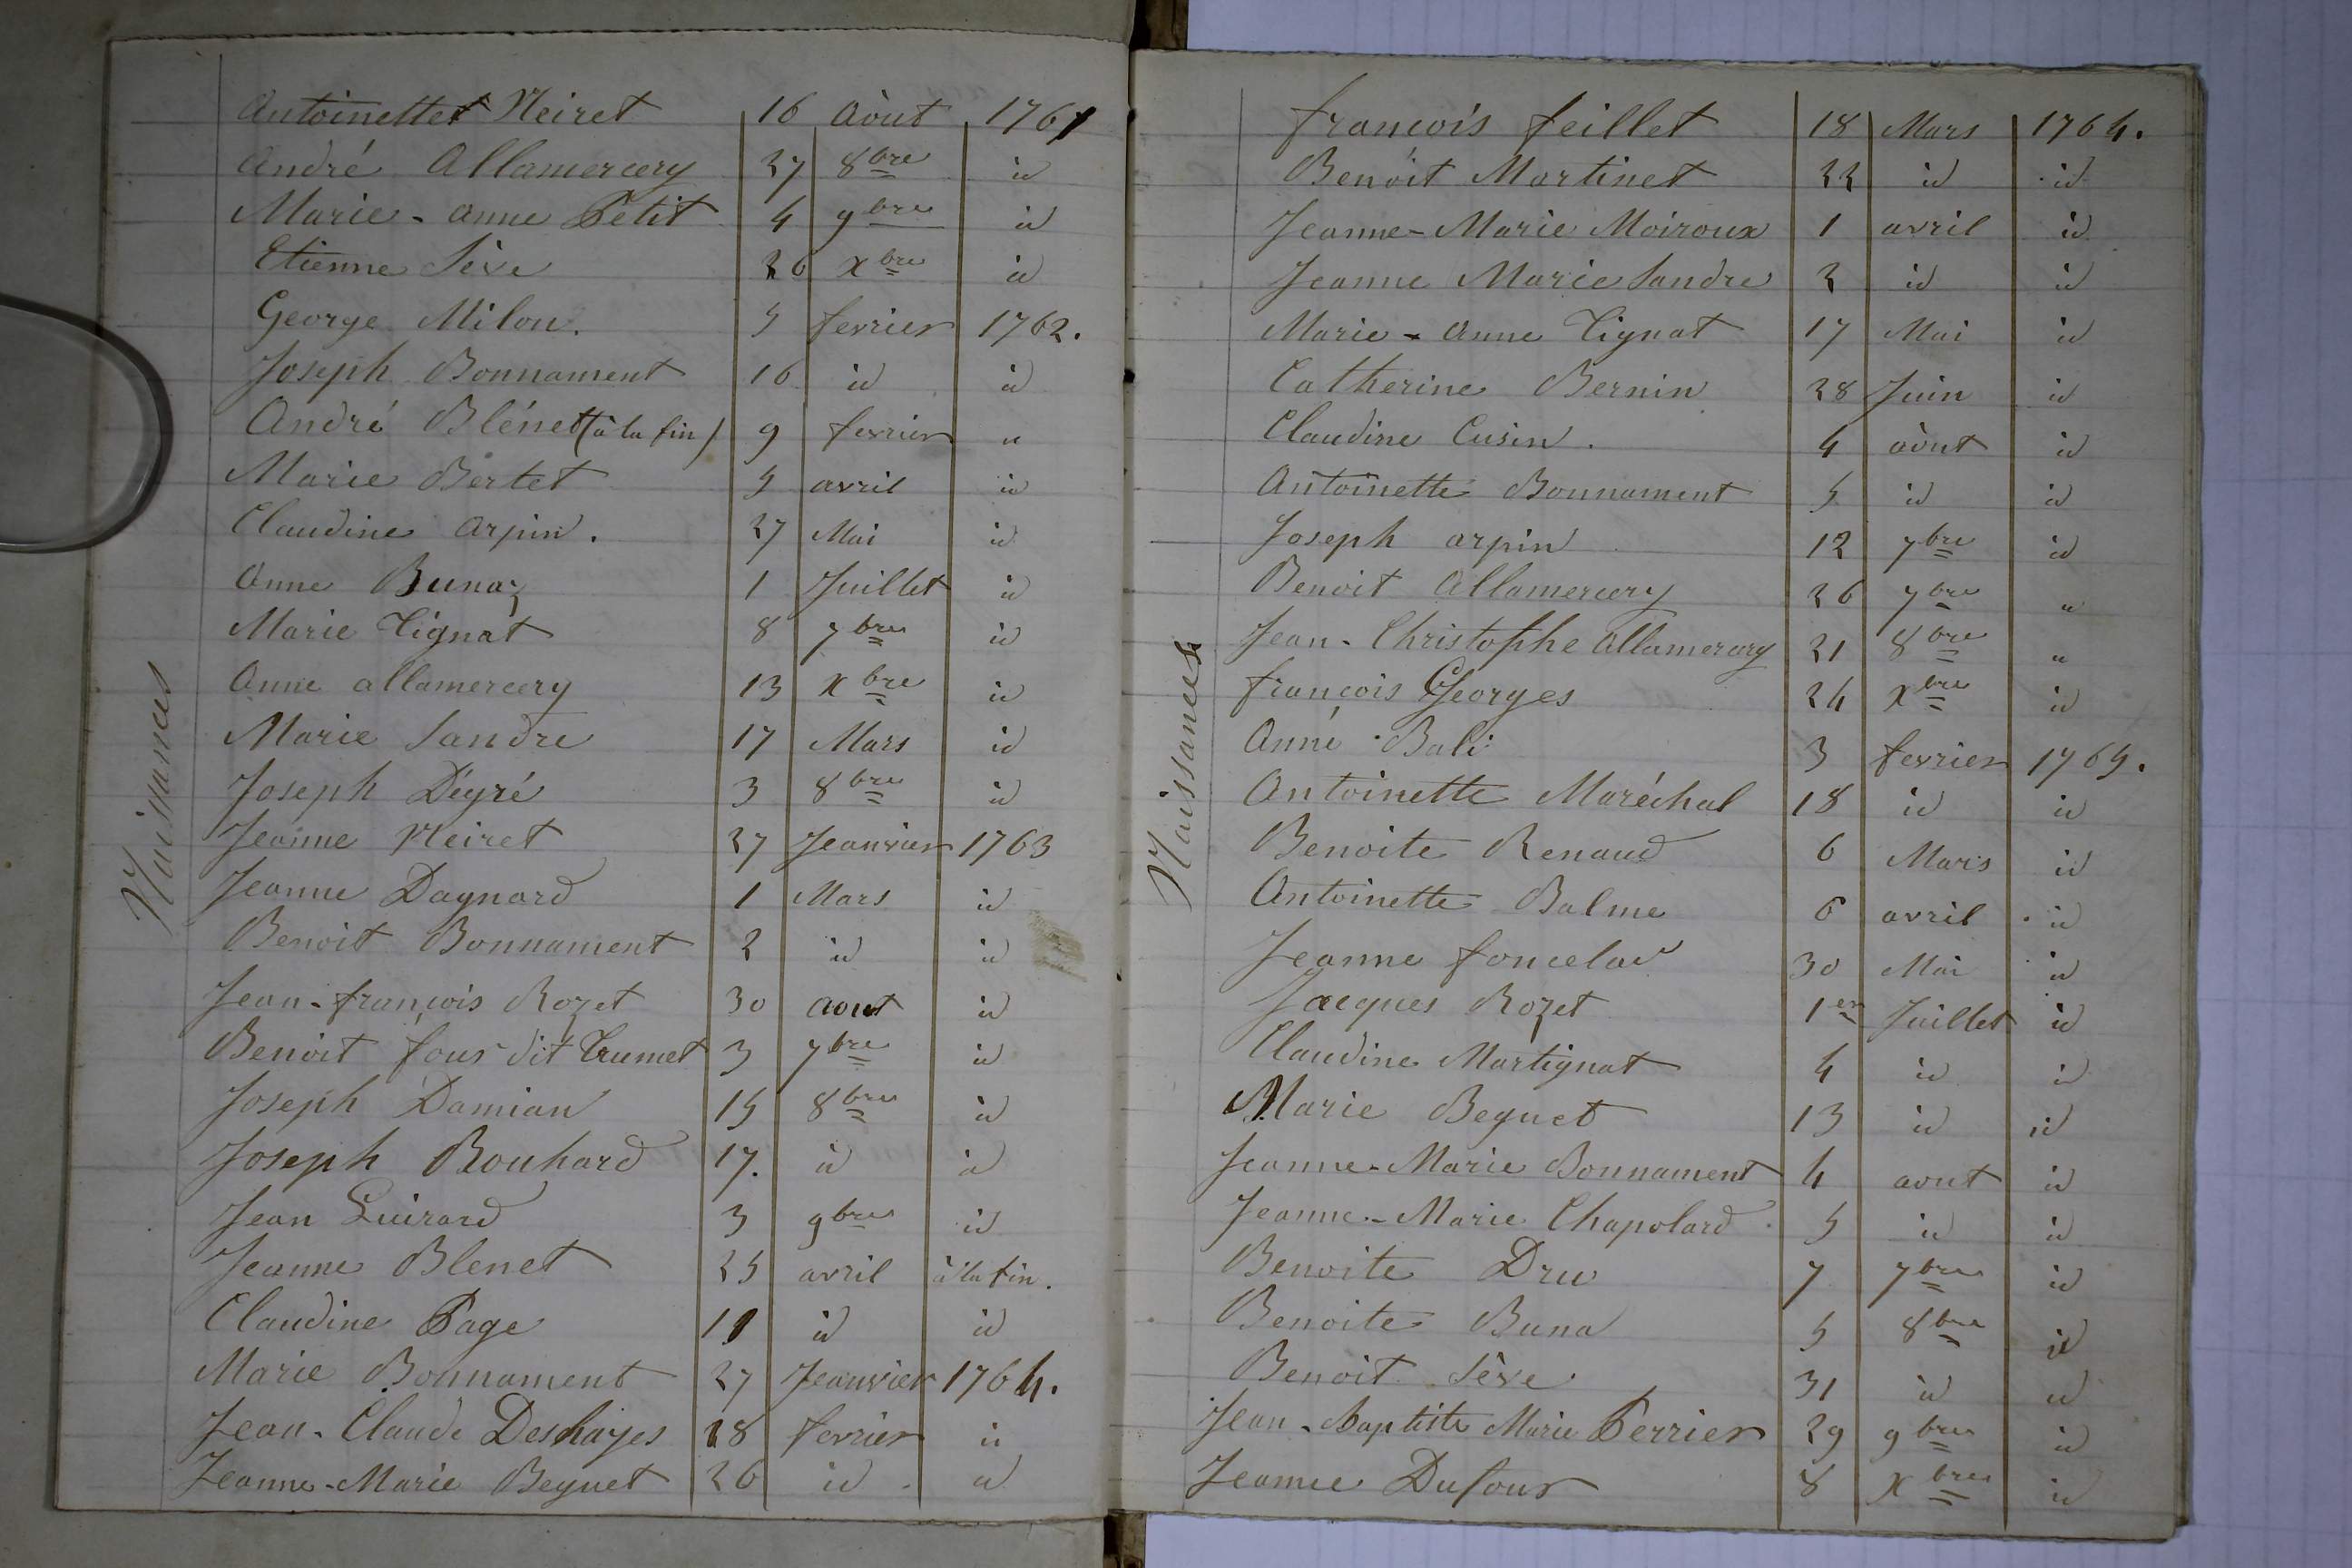 Naissances
Antoinette Neiret 16 Aòut 1761
André Allamercery 27 8bre id
Marie-anne Petit 4 9bre id
Etienne Sève 26 Xbre id
George Milon. 5 fevrier 1762.
Joseph Bonnament 16 id id
André Blénet (à la fin) 9 fevrier "
Marie Bertet 5 avril id
Claudine Arpin. 27 Mai id
Anne Bunaz 1 Juillet id
Marie Tignat 8 7bre id
Anne allamercery 13 Xbre id
Marie Sandre 17 Mars id
Joseph Dégré 3 8bre id
Jeanne Neiret 27 Jeanvier 1763
Jeanne Dagnard 1 Mars id
Benoit Bonnament 2 id id
Jean-françois Rozet 30 aout id
Benoit four dit Trumet 3 7bre id
Joseph Damian 15 8bre id
Joseph Bouhard 17. id id
Jean Guirard 3 9bre id
Jeanne Blenet 25 avril à la fin.
Claudine Page 11 id id
Marie Bonnament 27 Jeanvier 1764.
Jean-Claude Deshayes 28 fevrier id
Jeanne-Marie Beguet 26 id id
Naissances
françois feillet 18 Mars 1764.
Benoit Martinet 22 id id
Jeanne-Marie Moiroux 1 avril id
Jeanne Marie Sandre 2 id id
Marie-Anne Tignat 17 Mai id
Catherine Bernin 28 Juin id
Claudine Cusin. 4 aòut id
Antoinette Bonnament 5 id id
Joseph arpin 12 7bre id
Benoit Allamercery 26 7bre "
Jean-Christophe Allamercery 21 8bre "
françois Georges 24 Xbre id
Anne Bali 3 fevrier 1765.
Antoinette Maréchal 18 id id
Benoite Renaud 6 Mars id
Antoinette Balme 6 avril id
Jeanne foncelar 30 Mai id
Jacques Rozet 1er Juillet id
Claudine Martignat 4 id id
Marie Beguet 13 id id
Jeanne-Marie Bonnament 4 aout id
Jeanne-Marie Chapolard. 5 id id
Benoite Dru 7 7bre id
Benoite Buna 5 8bre id
Benoit Sève 31 id id
Jean-Baptiste Marie Perrier 29 9bre id
Jeanne Dufour 8 Xbre id